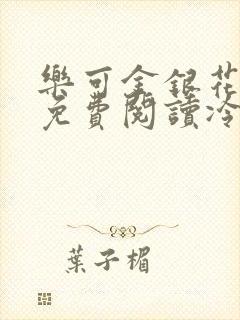 樂可金銀花
免費閱讀冷
葉子楣